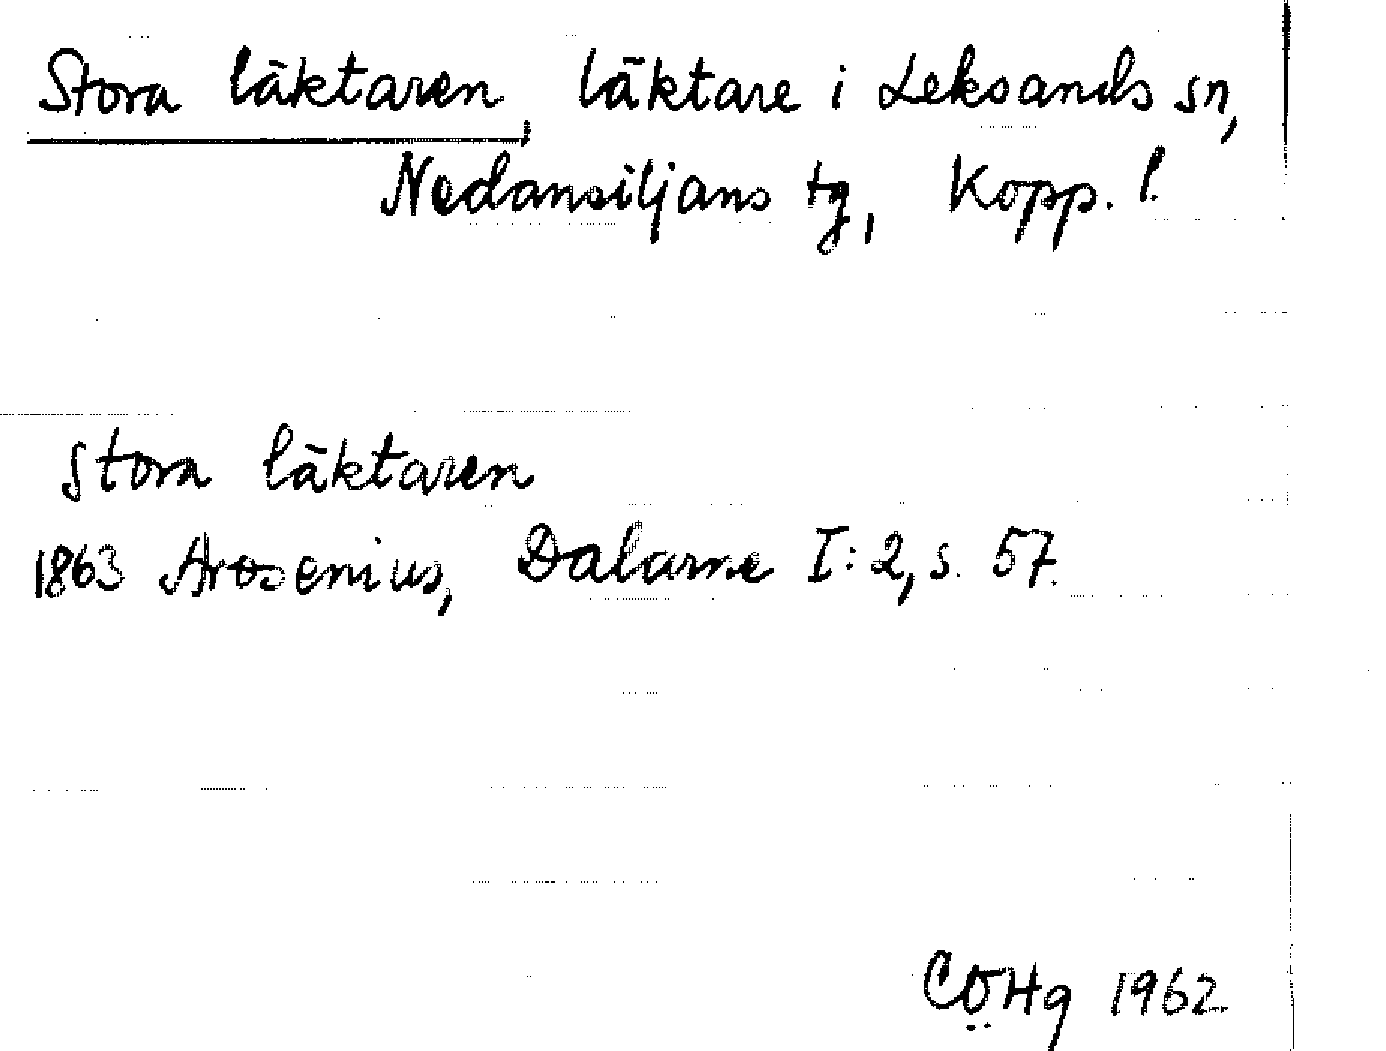 Stora läktaren, läktare i Leksands sn,
Nedansiljans tg, Kopp. l.
stora läktaren
1863 Arosenius, Dalarne I:2, s. 57.
CÖHg 1962